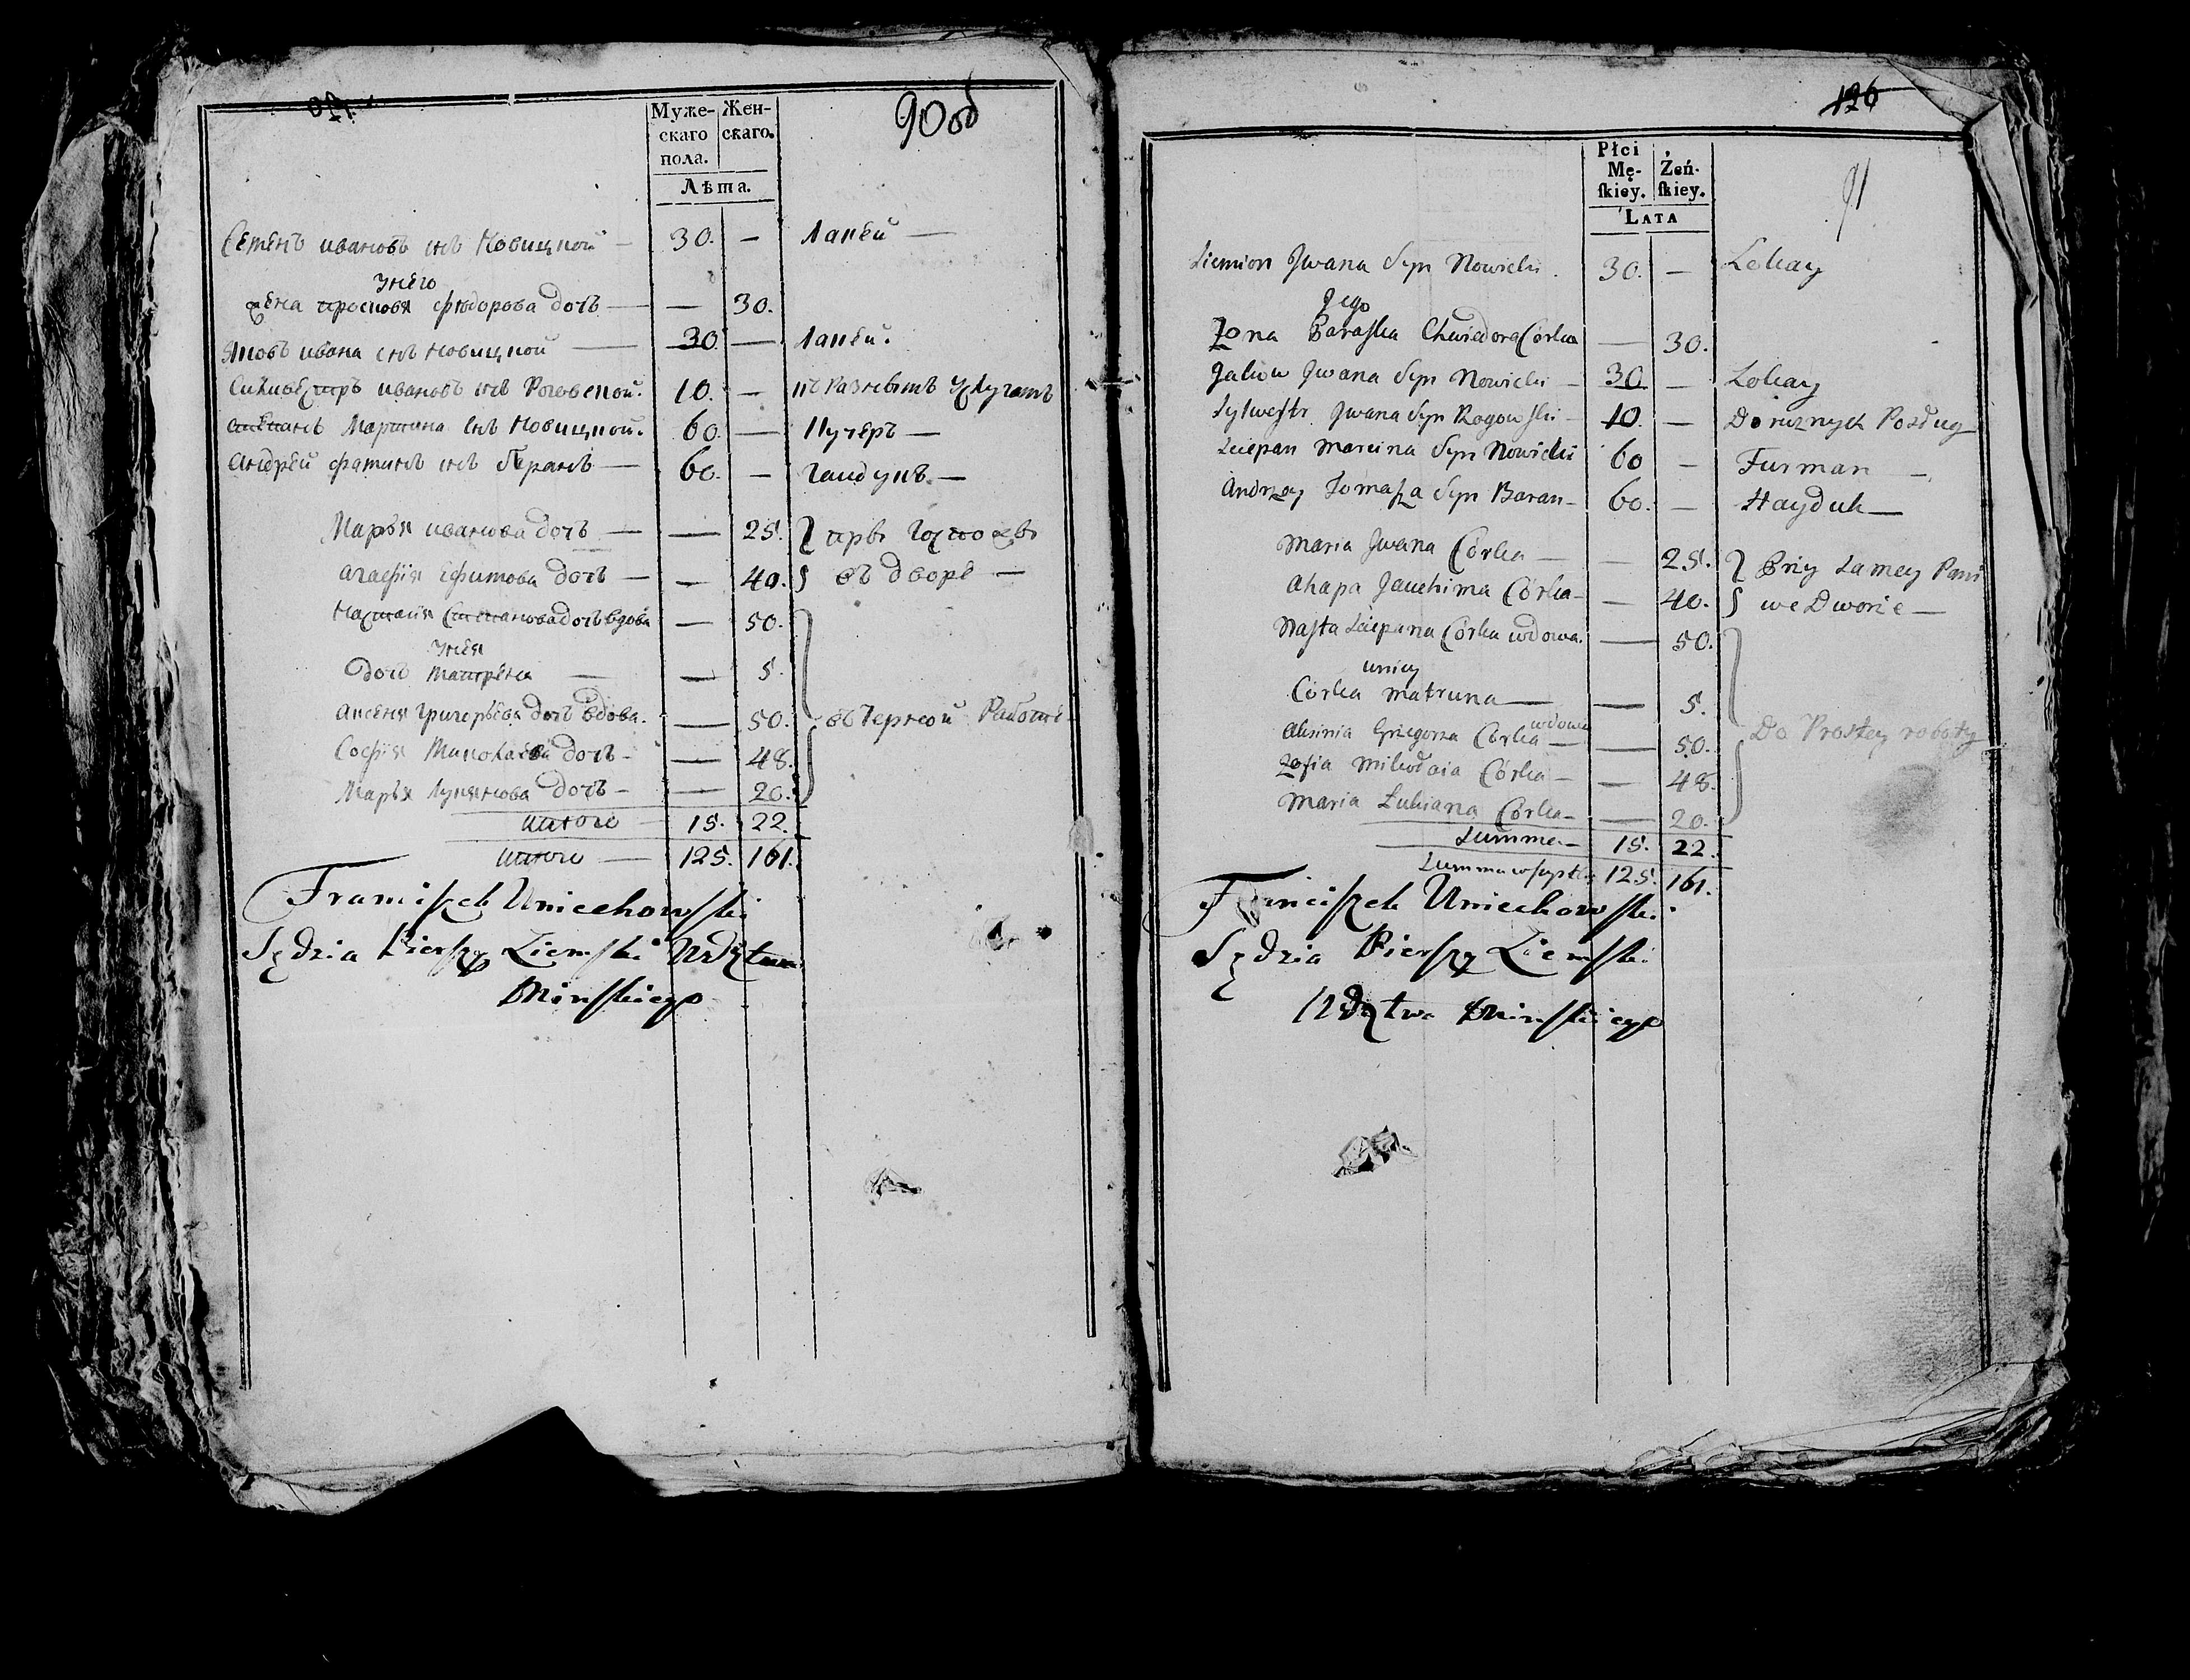 90 об
Муже- Жен-
скаго скаго.
пола.
Лѣта.
Семенъ ивановъ снъ Новицкой — 30. — Лакей —
унего
жена просковя фюдорова дочь — — 30.
Яковъ ивана снъ Новицкой — 30 — Лакей.
Силивестръ ивановъ снъ Роговской. 10. — къ разнымъ услугамъ
степанъ Мартина снъ Новицкой. 60. — Кучеръ —
Андрей фаминъ снъ Баранъ — 60. — Гаидукъ. —
Марья иванова дочь — — 25. при госпоже
агафия Ефимова дочь — — 40. въ дворе —
Настася Степанова дочь вдова — 50.
унея
дочь матрена — — 5.
Аксеня Григорьева дочь вдова. — 50. въ черной Работе
София Миколаева дочь — — 48.
Марья Лукянова дочь — — 20.
итого — 15. 22.
итого — 125. 161.
Franciszek Uniechowski
Sędzia Pierszy Ziemski Wdztwa
Minskiego
126
91
Płci Żeń-
Mę- ſkiey.
ſkiey.
LATA
Siemion Jwana Syn Nowicki. 30. — Lokay
Jego
Zona Paraska Chwiedora Corka — 30.
Jakow Jwana Syn Nowicki — 30. — Lokay
Sylwestr Jwana Syn Rogowski — 10. — Do roznych Posług
Sciepan Marcina Syn Nowicki 60 — Furman —
Andrzey Tomasza Syn Baran — 60. — Hayduk —
Maria Jwana Córka — — 25. Przy Samey Pani
Ahapa Jauchima Córka — — 40. we Dworie —
Nasta Sciepana Córka wdowa. — 50.
uniey
Córka Matruna — — 5.
wdowa
Aksinia Grzegorza Córka — — 50. Do Prostey roboty
Zofia Mikołaia Córka — — 48.
Maria Łukiana Córka — — 20.
Summa — 15. 22.
Summa wszystka 125. 161.
Franciszek Uniechowski.
Sędzia Pierszy Ziemski
Wdztwa Minskiego